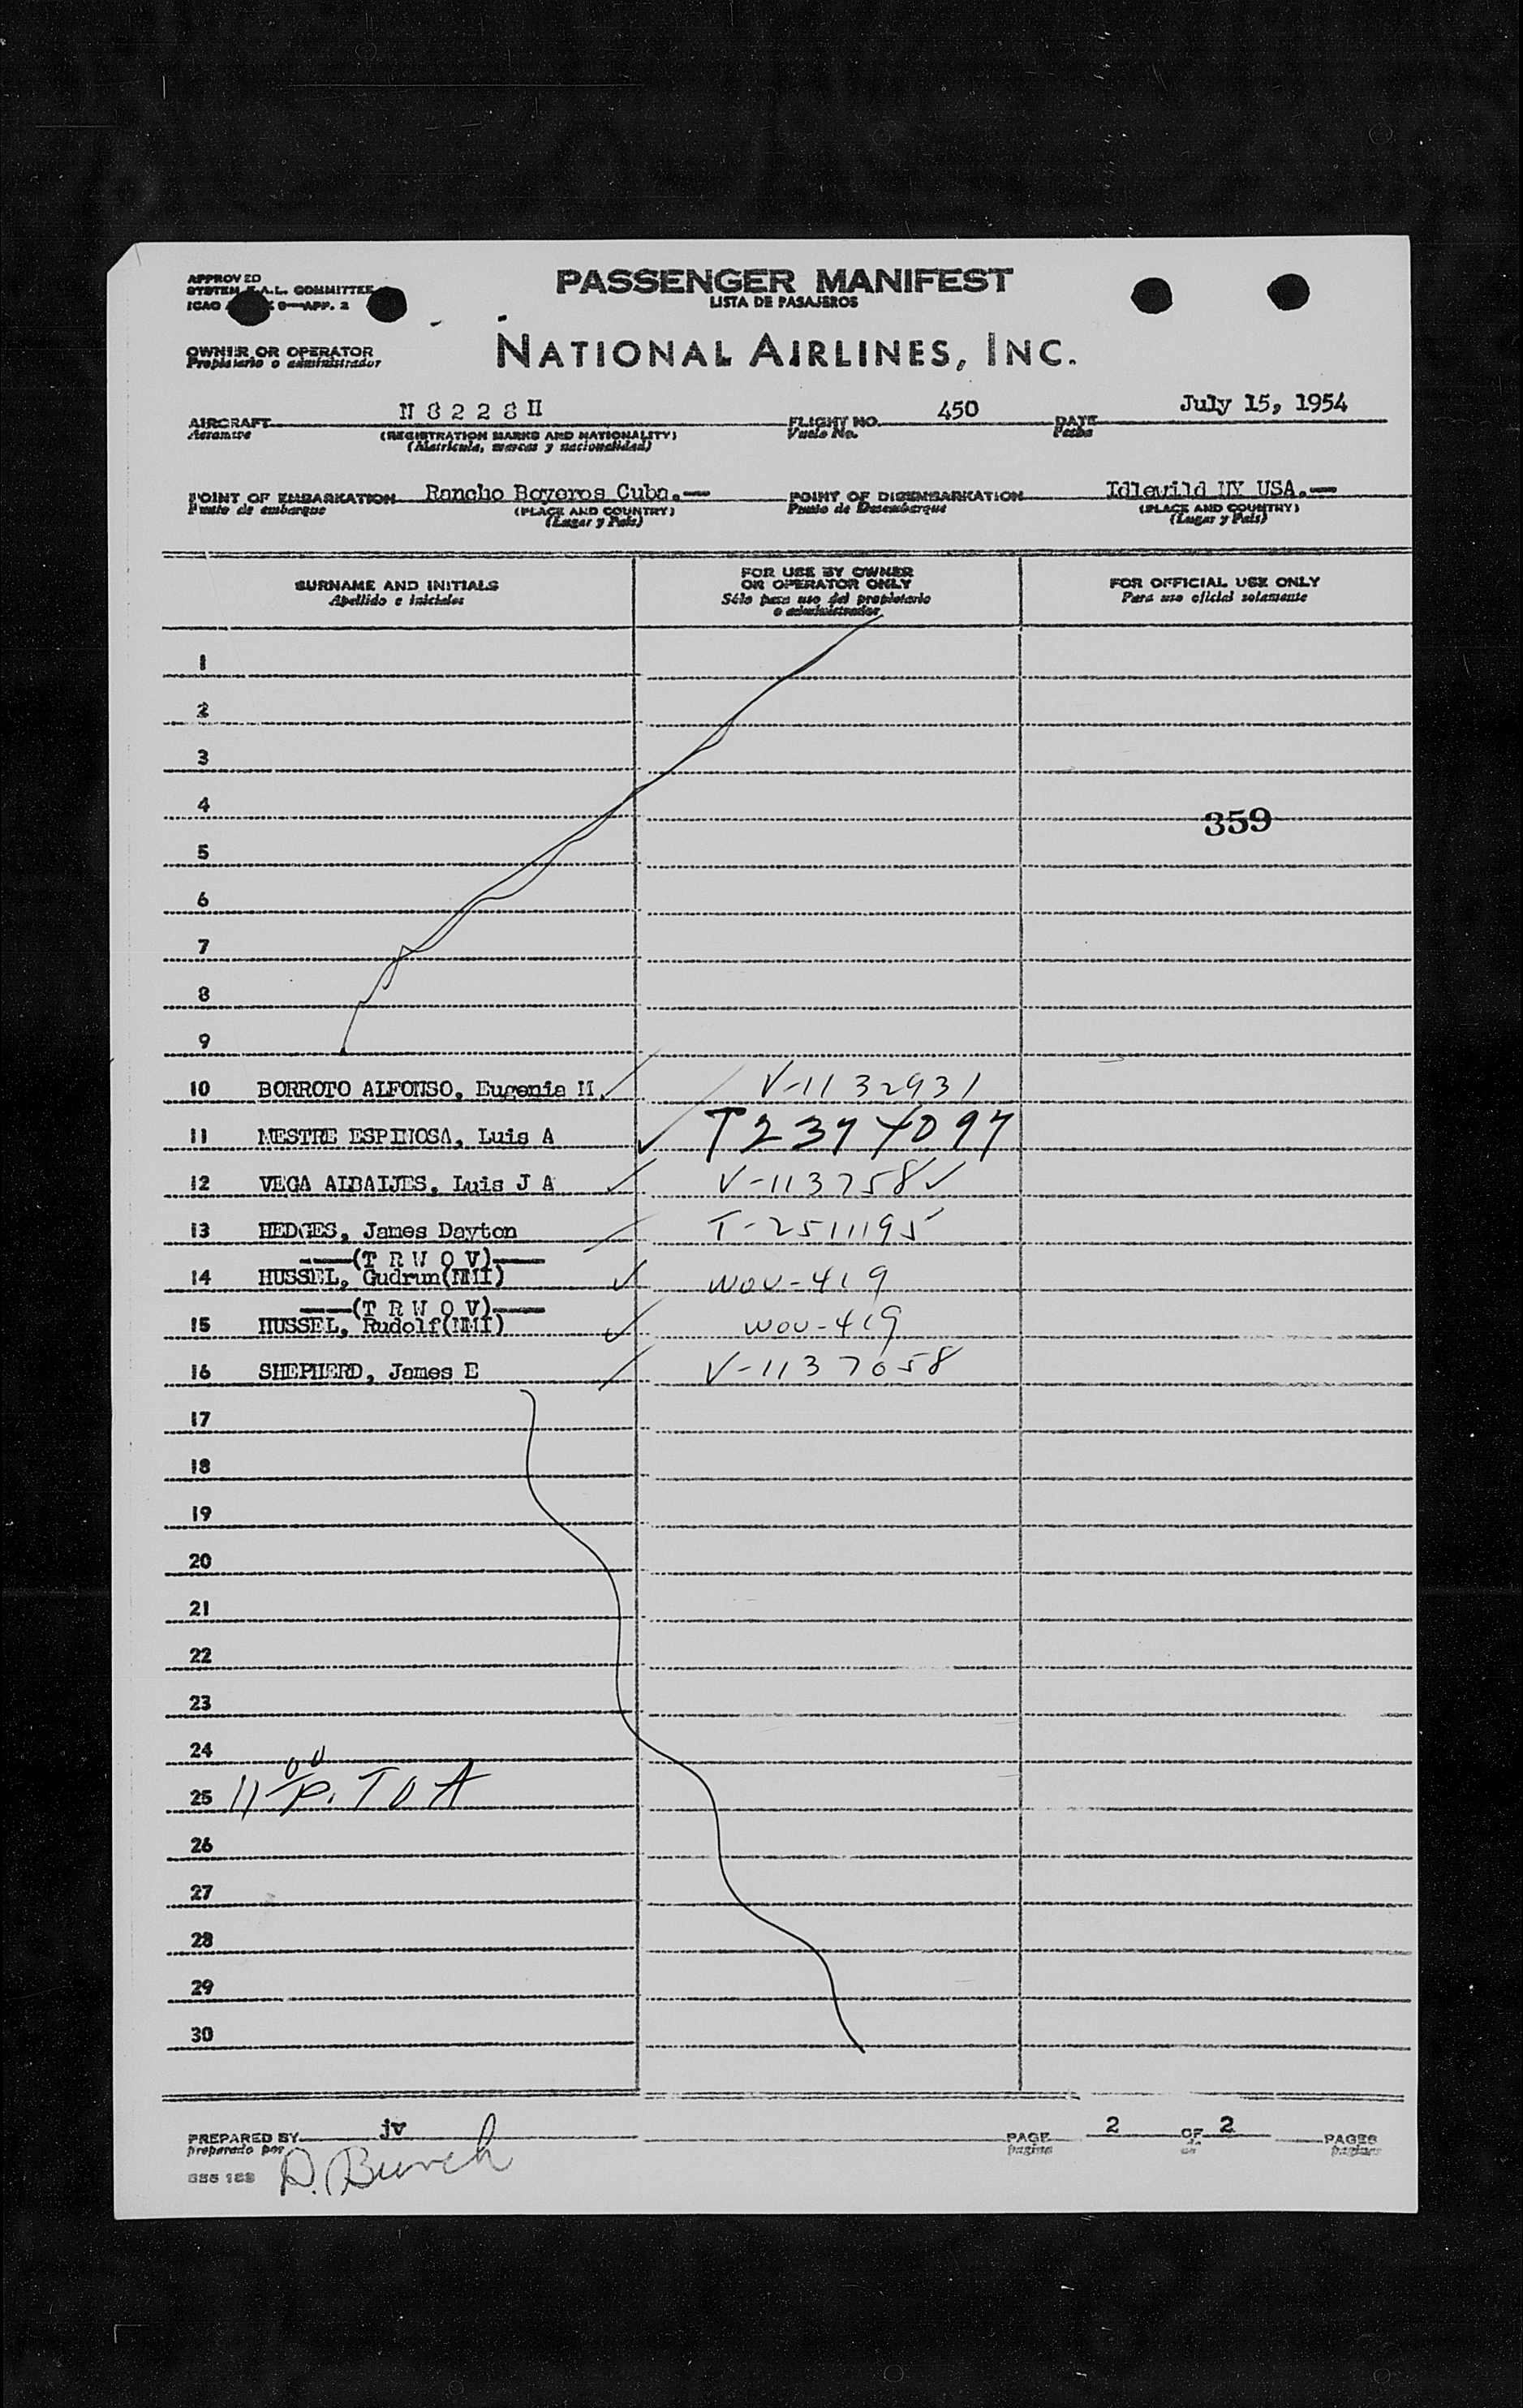 APPROVED
SYSTEM F.A.L. COMMITTEE
ICAO 9—APP. 2
PASSENGER MANIFEST
LISTA DE PASAJEROS
OWNER OR OPERATOR
Propietario o administrador
NATIONAL AIRLINES, INC.
AIRCRAFT N 8 2 2 8 H FLIGHT NO. 450 DATE July 15, 1954
Aeronave (REGISTRATION MARKS AND NATIONALITY) Vuelo No. Fecha
(Matricula, marcas y nacionalidad)
POINT OF EMBARKATION Rancho Boyeros Cuba.— POINT OF DISEMBARKATION Idlewild NY USA.—
Punto de embarque (PLACE AND COUNTRY) Punto de Desembarque (PLACE AND COUNTRY)
(Lugar y País) (Lugar y País)
SURNAME AND INITIALS
Apellido e iniciales
FOR USE BY OWNER
OR OPERATOR ONLY
Sólo para uso del propietario
o administrador
FOR OFFICIAL USE ONLY
Para uso oficial solamente
1
2
3
4 359
5
6
7
8
9
10 BORROTO ALFONSO, Eugenia M. V-1132931
11 MESTRE ESPINOSA, Luis A
12 VEGA ALBAIJES, Luis J A V-113758
13 HEDGES, James Dayton T-2511195
——(T R W O V)——
14 HUSSEL, Gudrun(NMI) WOV-419
——(T R W O V)——
15 HUSSEL, Rudolf(NMI) WOV-419
16 SHEPHERD, James E V-1137058
17
18
19
20
21
22
23
24
25 11 00 P. T O A
26
27
28
29
30
PREPARED BY jv PAGE 2 OF 2 PAGES
preparado por pagina de paginas
D. Burch